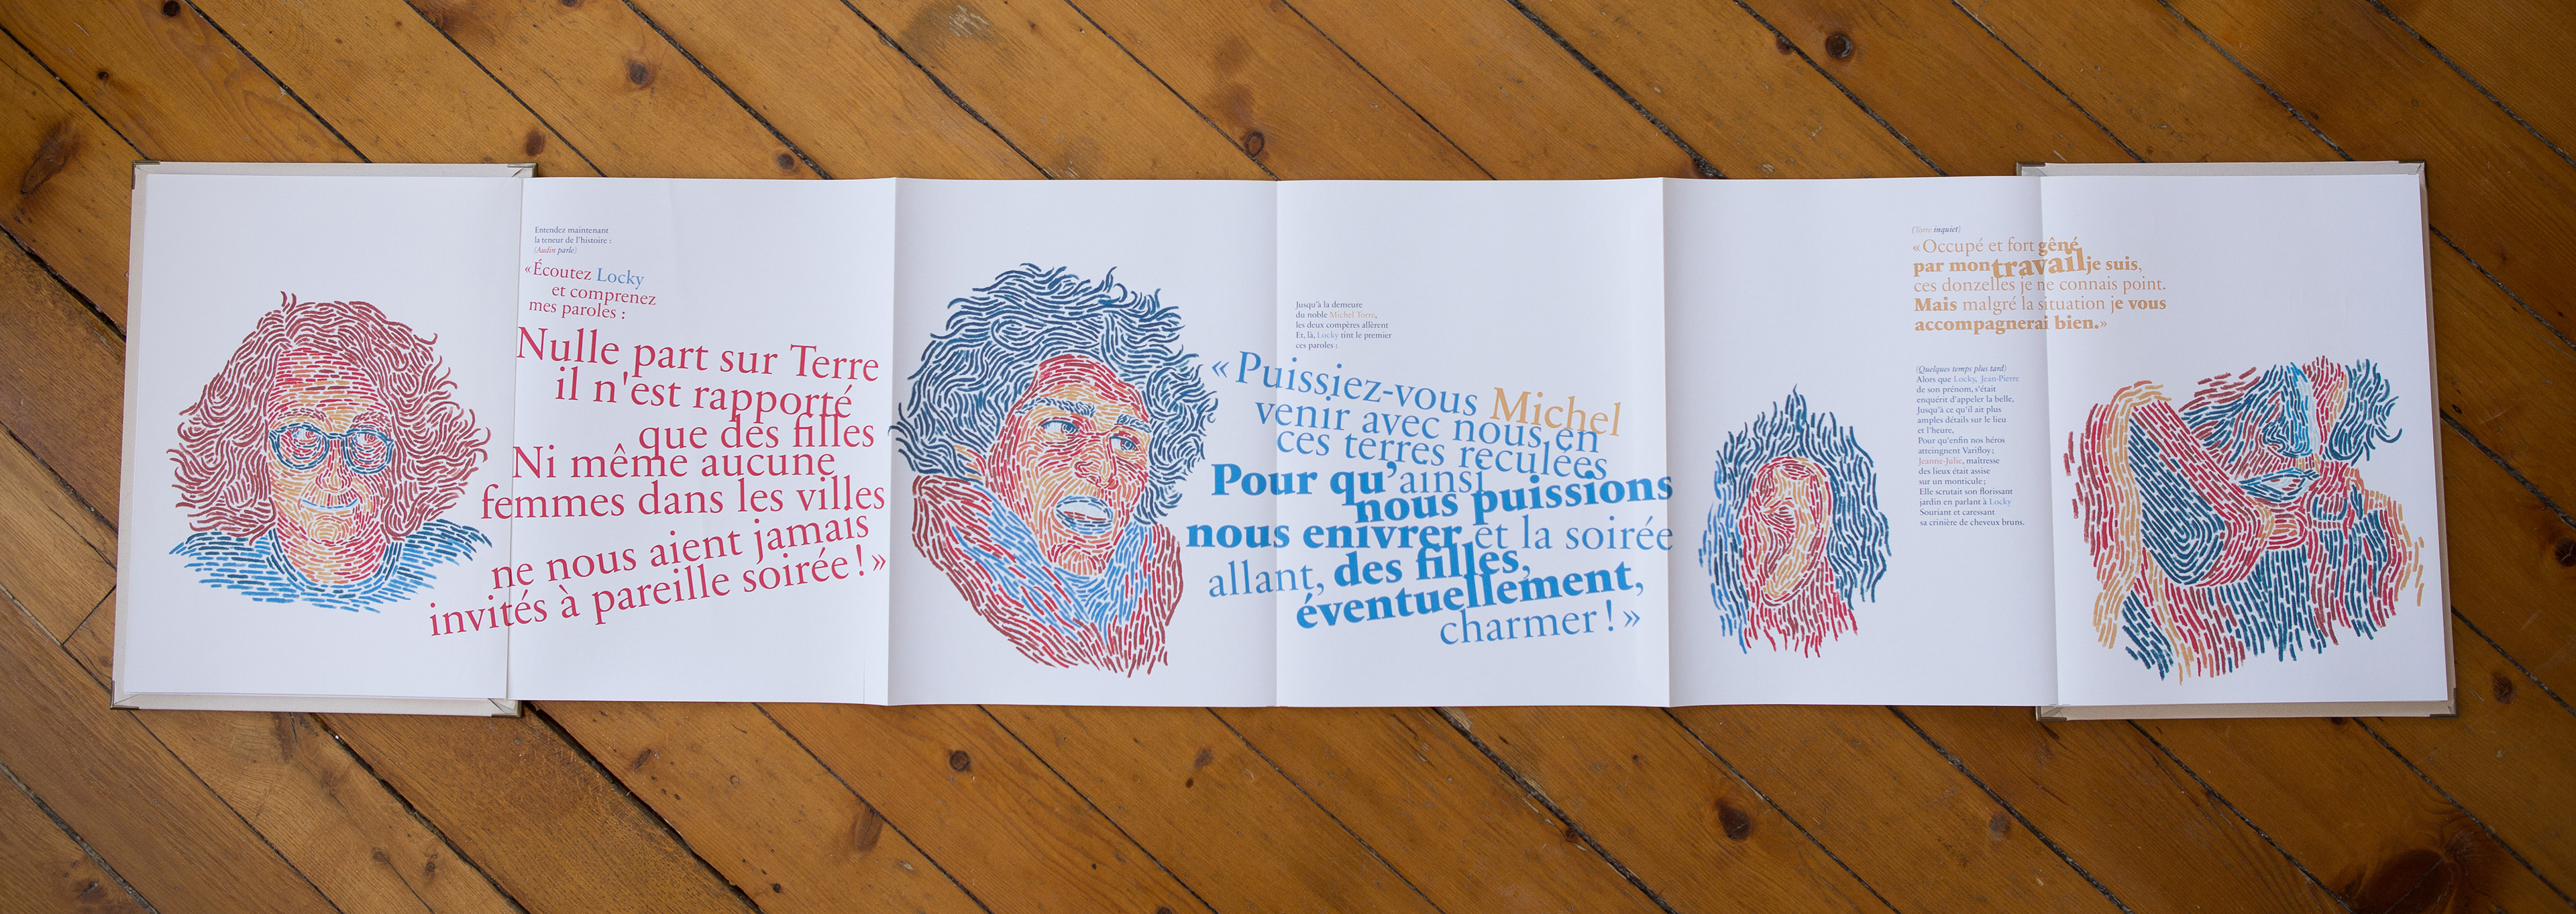 Entendez maintenant
la teneur de l'histoire :
(Audin parle)
«Écoutez Locky
et comprenez
mes paroles :
Nulle part sur Terre
il n'est rapporté
que des filles
Ni même aucune
femmes dans les villes
ne nous aient jamais
invités à pareille soirée!»
Jusqu'à la demeure
du noble Michel Torre,
les deux compères allèrent
Et, là, Locky tint le premier
ces paroles :
«Puissiez-vous Michel
venir avec nous en
ces terres reculées
Pour qu'ainsi
nous puissions
nous enivrer et la soirée
allant, des filles,
éventuellement,
charmer!»
(Torre inquiet)
«Occupé et fort gêné
par mon travail je suis,
ces donzelles je ne connais point.
Mais malgré la situation je vous
accompagnerai bien.»
(Quelques temps plus tard)
Alors que Locky, Jean-Pierre
de son prénom, s'était
enquérit d'appeler la belle,
Jusqu'à ce qu'il ait plus
amples détails sur le lieu
et l'heure,
Pour qu'enfin nos héros
atteingnent Varifloy;
Jeanne-Julie, maîtresse
des lieux était assise
sur un monticule;
Elle scrutait son florissant
jardin en parlant à Locky
Souriant et caressant
sa crinière de cheveux bruns.